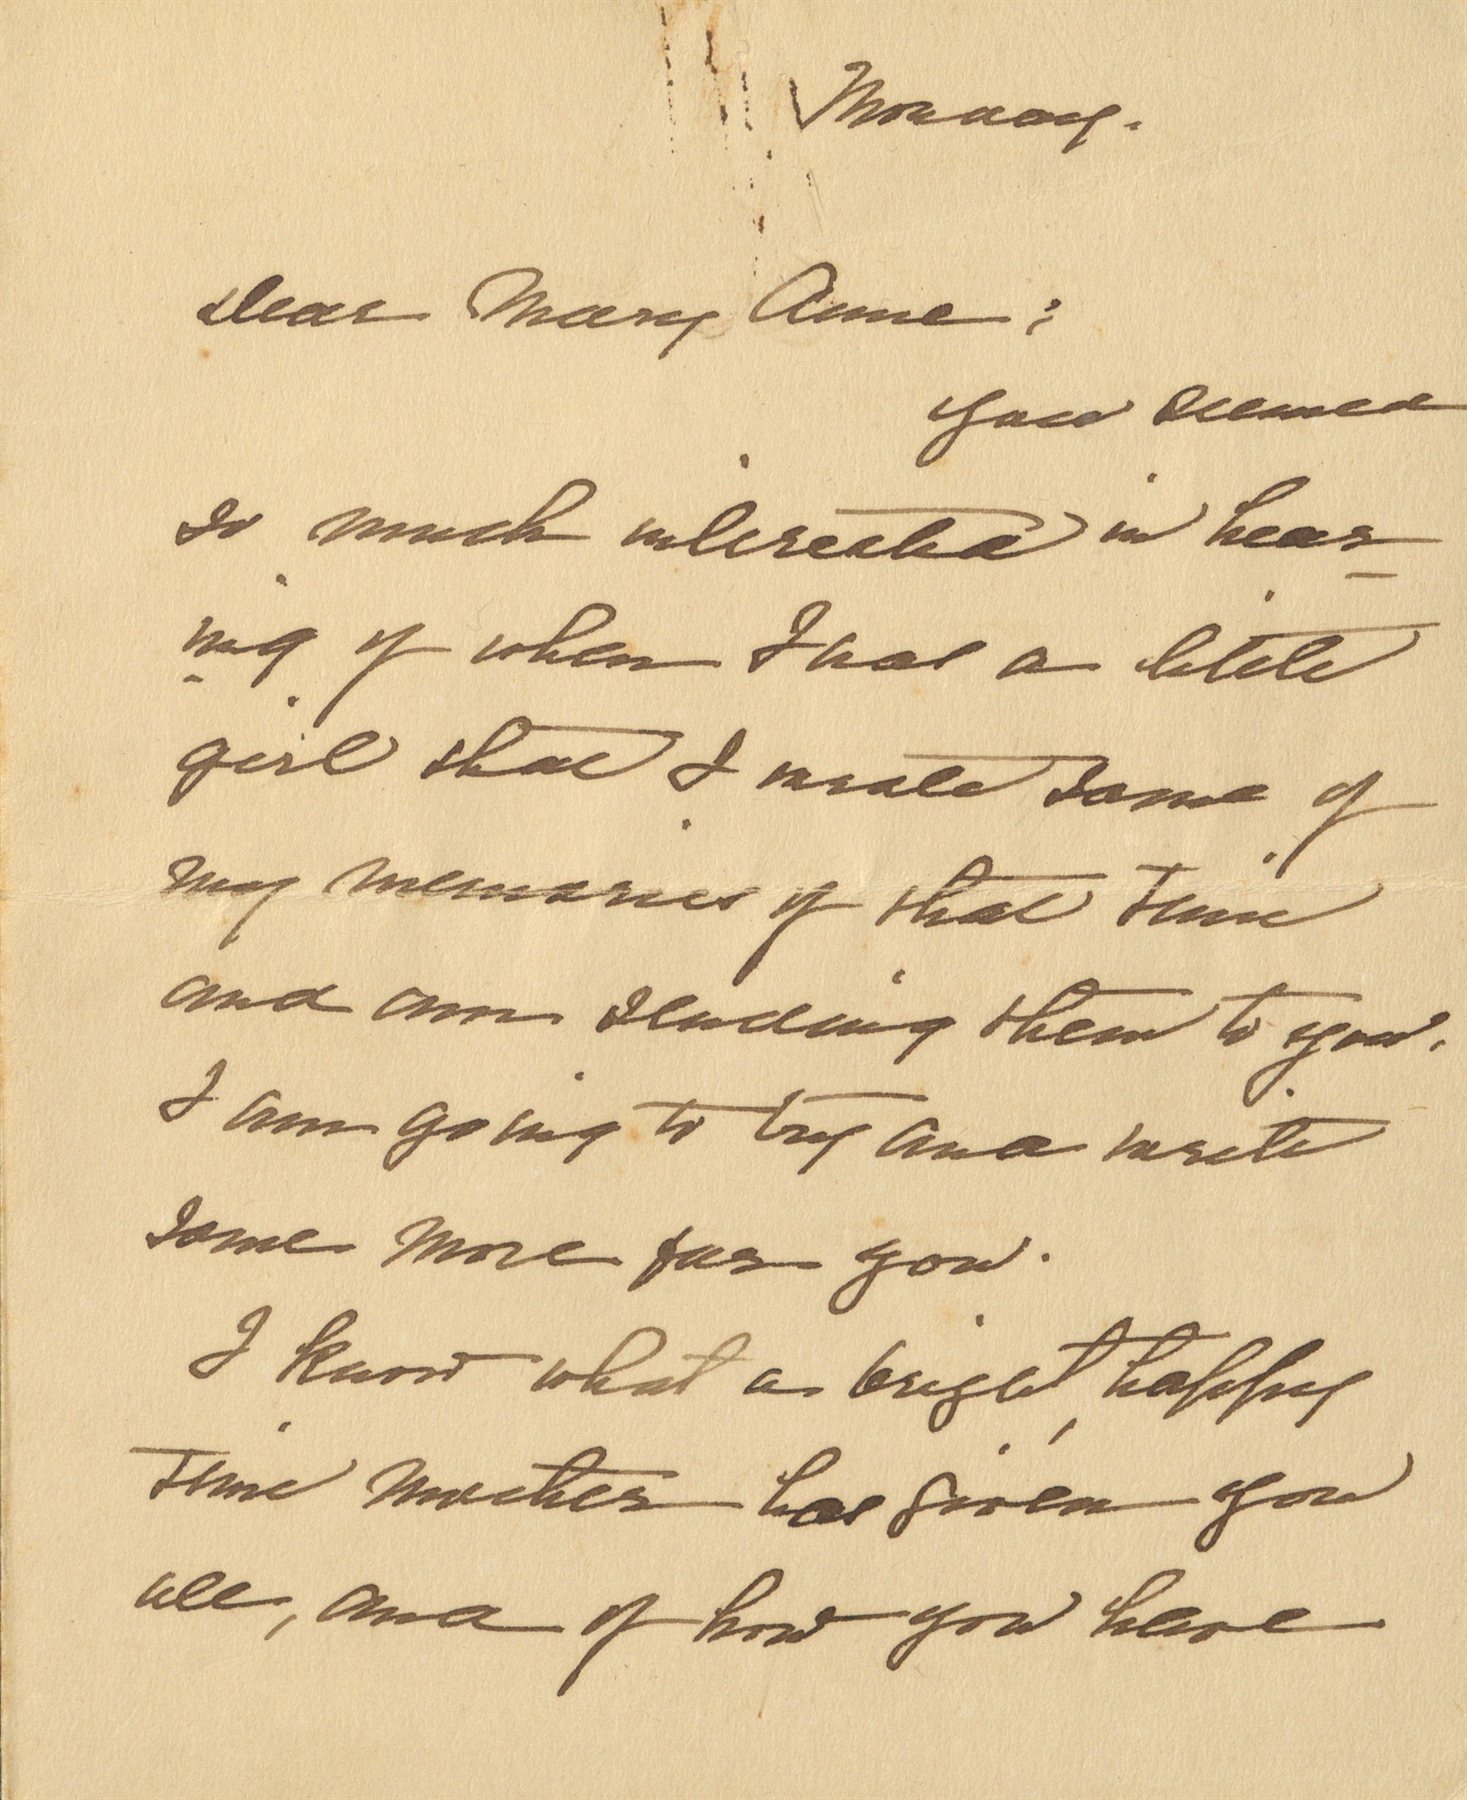 Monday.
Dear Mary Anne:
You seemed
so much interested in hear-
ing of when I was a little
girl that I wrote some of
my memories of that time
and am sending them to you.
I am going to try and write
some more for you.
I know what a bright, happy
time mother has given you
all, and of how you have